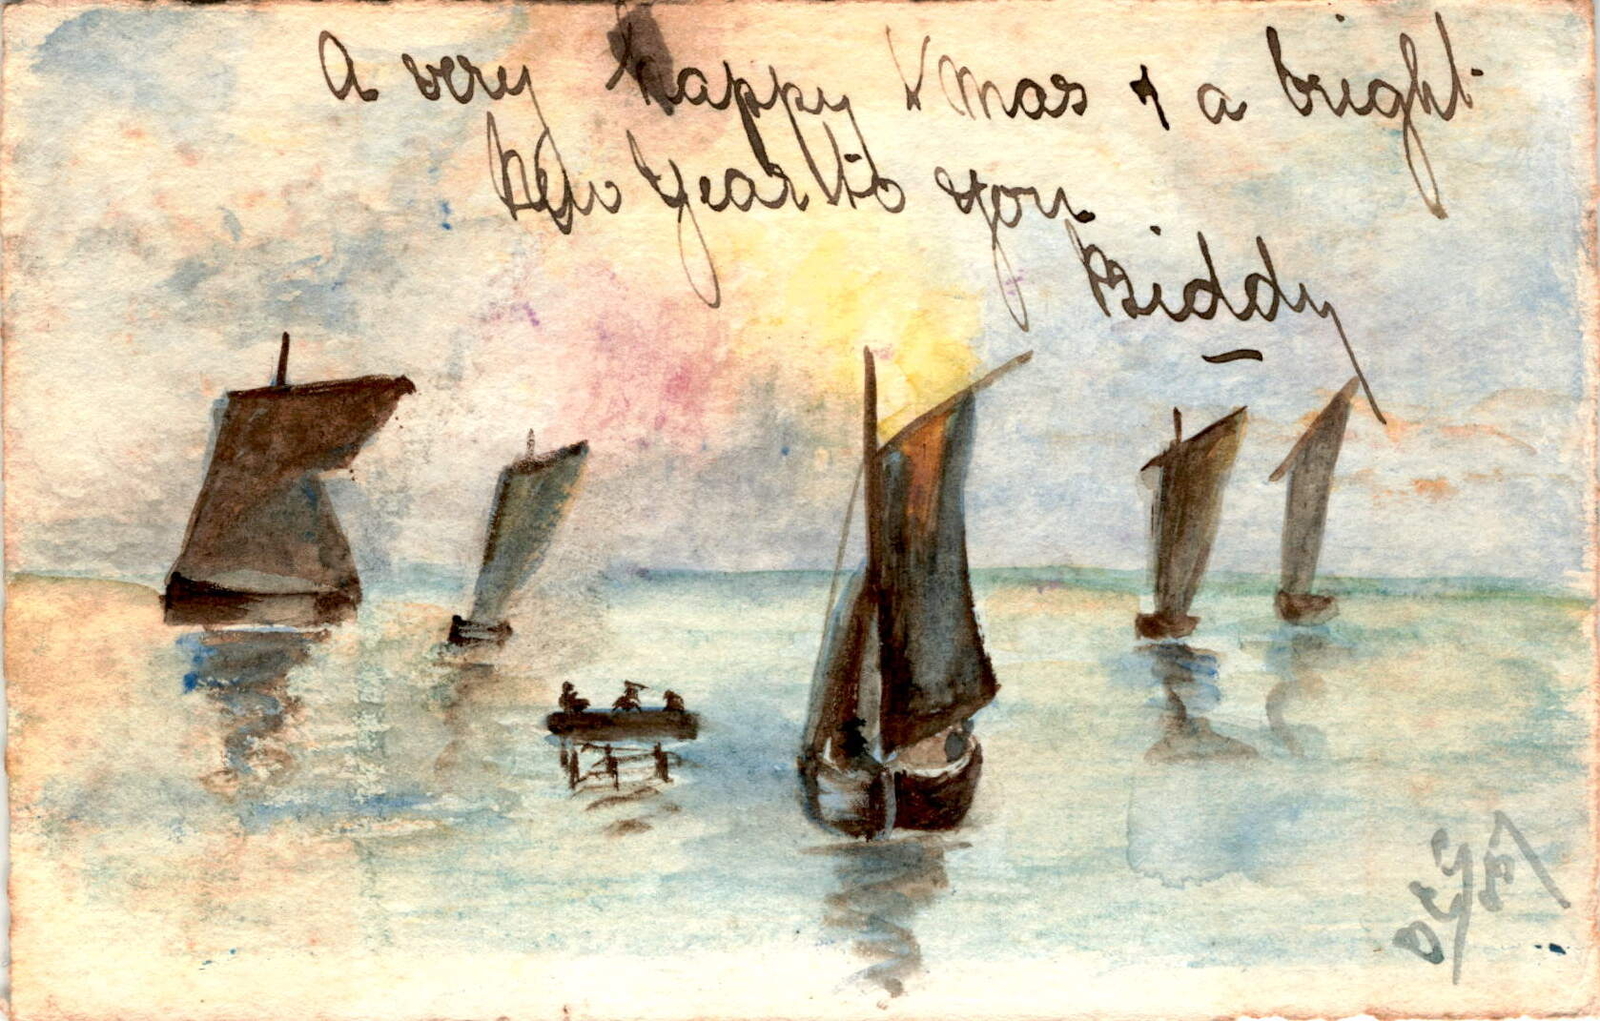 A very happy Xmas & a bright
New Year to you.
Biddy